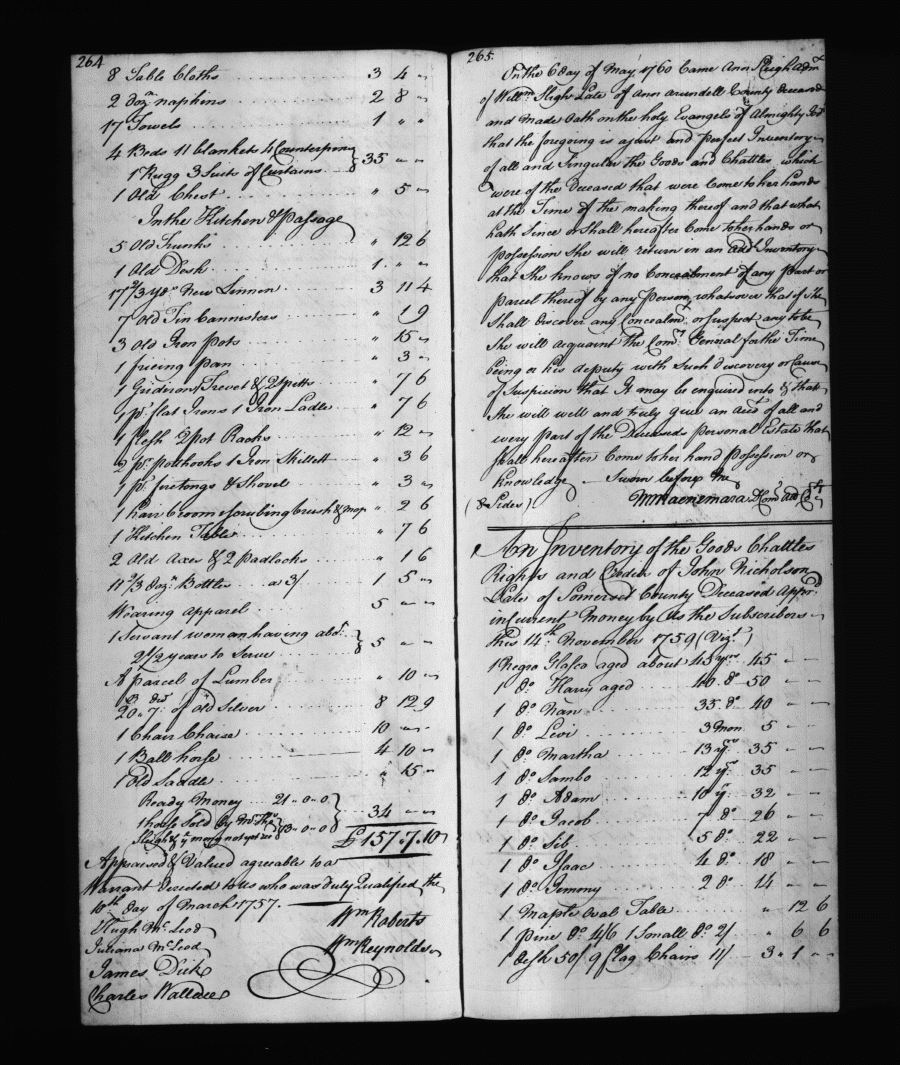 264
8 Table Cloths 3 4 "
2 doz.n napkins 2 8 "
17 Towels 1 " "
4 Beds 11 blankets 4 Counterpones
1 Rugg 3 Suits of Curtains 35 " "
1 Old Chest " 5 "
In the Kitchen & passage
5 Old Trunks " 12 6
1 Old Desk 1 " "
17 2/3 yds New Linnen 3 11 4
7 Old Tin Cannisters " 1 9
3 Old Iron pots " 15 "
1 frieing pan " 3 "
1 Gridiron 1 Trevet & 2 Spitts " 7 6
1 pr. flat Irons 1 Iron Ladle " 7 6
1 flesh 2 pot Racks " 12 "
2 pr. pothooks 1 Iron Skillett " 3 6
1 pr. firetongs & Shovel " 3 "
1 hair broom scrubing brush & mop " 2 6
1 Kitchen Table " 7 6
2 Old Axes & 2 padlocks " 1 6
11 2/3 doz.n Bottles a 3/ 1 5 "
Wearing apparel 5 " "
1 Servant woman having abot.
2 1/2 years to Serve 5 " "
A parcel of Lumber " 10 "
20 " 7 of old Silver 8 12 9
1 Chair Chaise 10 " "
1 Ball horse 4 10 "
1 Old Saddle " 15 "
Ready Money 21 " 0 " 0
1 horse Sold by Mr. Tho.s
Sleigh & ye mony not yet 13 " 0 " 0 34 " "
£157.7.10
Appraised & Valued agreeable to a
Warrant directed to us who was duly Qualified the
10th day of March 1757.
Hugh Mc.Leod Wm Roberts
Juliana Mc.Leod Wm Reynolds
James Dick
Charles Wallace
265.
On the 6 day of May 1760 Came Ann Sleigh Adm.x
of Willm Sleigh Late of Ann Arundell County deceased
and made Oath on the holy Evangels of Almighty God
that the foregoing is a just and perfect Inventory
of all and Singular the Goods and Chattles which
were of the Deceased that were Come to her hands
at the Time of the making thereof and that what
hath Since or Shall hereafter Come to her hands or
possession She will return in an add Inventory
that She knows of no Concealment of any part or
parcel thereof by any person whatsover that if She
Shall discover any Concealmt. or Suspect any to be
She will acquaint the Comy. General for the Time
being or his deputy with Such discovery or Cause
of Suspicion that It may be enquired into & that
She will well and truly give an Acct. of all and
every part of the Deceaseds personal Estate that
Shall hereafter Come to her hand possession or
knowledge Sworn before me
(& Sides)
An Inventory of the Goods Chattles
Rights and Credits of John Nicholson
Late of Somerset County Deceased Apprd.
in Current Money by Us the Subscribers
this 14th November 1759 (Vizt.)
1 Negro Glasca aged about 45 yrs 45 " "
1 do. Harry aged 40 do. 50 " "
1 do. Nan 35 do. 40 " "
1 do. Levi 3 mon. 5 " "
1 do. Martha 13 yr. 35 " "
1 do. Sambo 12 yr. 35 " "
1 do. Adam 10 y. 32 " "
1 do. Jacob 7 do. 26 " "
1 do. Sib 5 do. 22 " "
1 do. Isaac 4 do. 18 " "
1 do. Jemmy 2 do. 14 " "
1 Maple Oval Table " 12 6
1 pine do. 4/6 1 Small do. 2/ " 6 6
1 desk 50/ 9 flag Chairs 11/ 3 " 1 "